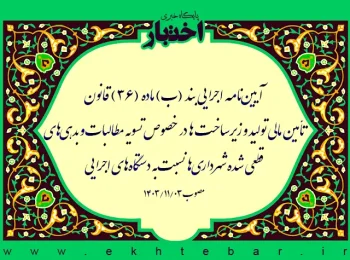 پایگاه خبری
اختبار
آیین‌نامه اجرایی بند (ب) ماده (۳۶) قانون
تأمین مالی تولید و زیرساخت‌ها در خصوص تسویه مطالبات و بدهی‌های
قطعی شده شهرداری‌ها نسبت به دستگاه‌های اجرایی
مصوب ۱۴۰۳/۱۱/۰۳
www.ekhtebar.ir